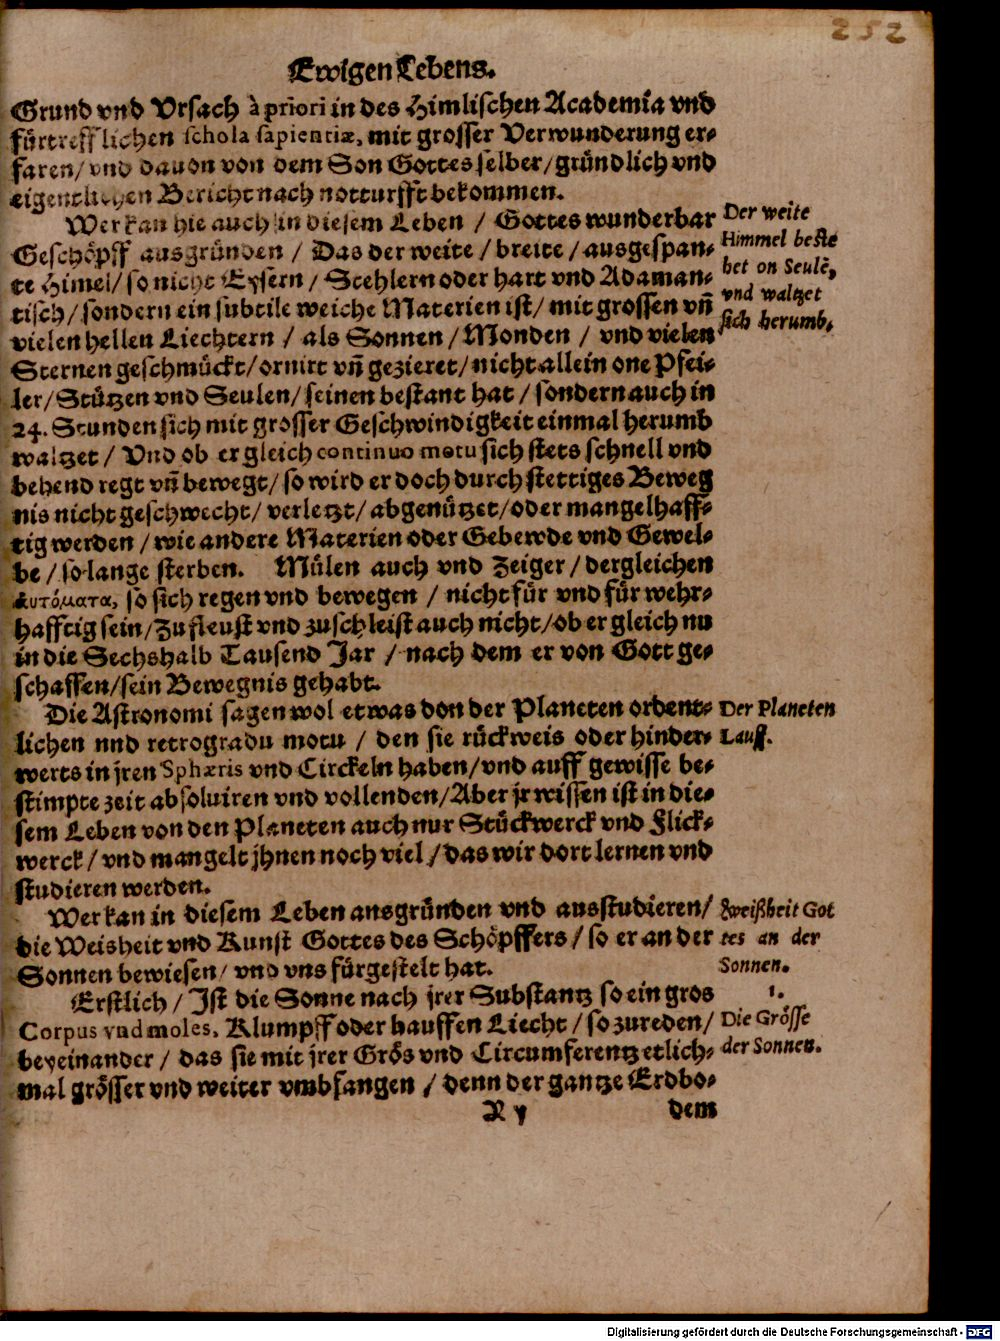 252
Ewigen Lebens.
Grund vnd Vrsach à priori in des Himlischen Academia vnd
fürtrefflichen schola sapientiæ, mit grosser Verwunderung er-
faren/ vnd dauon von dem Son Gottes selber/ gründlich vnd
eigentlichen Bericht nach notturfft bekommen.
Wer kan hie auch in diesem Leben / Gottes wunderbar
Geschöpff ausgründen / Das der weite / breite / ausgespan-
te Himel/ so nicht Eysern / Stehlern oder hart vnd Adaman-
tisch/ sondern ein subtile weiche Materien ist/ mit grossen vñ
vielen hellen Liechtern / als Sonnen / Monden / vnd vielen
Sternen geschmückt/ ornirt vñ gezieret/ nicht allein one Pfei-
ler/ Stützen vnd Seulen/ seinen bestant hat / sondern auch in
24. Stunden sich mit grosser Geschwindigkeit einmal herumb
waltzet / Vnd ob er gleich continuo motu sich stets schnell vnd
behend regt vñ bewegt/ so wird er doch durch stettiges Beweg
nis nicht geschwecht/ verletzt/ abgenützet/ oder mangelhaff-
tig werden / wie andere Materien oder Gebewde vnd Gewel-
be / so lange sterben. Mülen auch vnd Zeiger / dergleichen
ἀυτόματα, so sich regen vnd bewegen / nicht für vnd für wehr-
hafftig sein/ Zufleust vnd zuschleist auch nicht/ ob er gleich nu
in die Sechshalb Tausend Jar / nach dem er von Gott ge-
schaffen/ sein Bewegnis gehabt.
Die Astronomi sagen wol etwas don der Planeten ordent-
lichen nnd retrogradu motu / den sie rückweis oder hinder-
werts in jren Sphæris vnd Circkeln haben/ vnd auff gewisse be-
stimpte zeit absoluiren vnd vollenden/ Aber jr wissen ist in die-
sem Leben von den Planeten auch nur Stückwerck vnd Flick-
werck / vnd mangelt jhnen noch viel / das wir dort lernen vnd
studieren werden.
Wer kan in diesem Leben ansgründen vnd ausstudieren/
die Weisheit vnd Kunst Gottes des Schöpffers / so er an der
Sonnen bewiesen/ vnd vns fürgestelt hat.
Erstlich / Jst die Sonne nach jrer Substantz so ein gros
Corpus vnd moles, Klumpff oder hauffen Liecht / so zureden/
beyeinander / das sie mit jrer Grös vnd Circumferentz etlich-
mal grösser vnd weiter vmbfangen / denn der gantze Erdbo-
R y
dem
Der weite
Himmel beste
het on Seulẽ,
vnd waltzet
sich herumb.
Der Planeten
Lauff.
Weißheit Got
tes an der
Sonnen.
1.
Die Grösse
der Sonnen.
Digitalisierung gefördert durch die Deutsche Forschungsgemeinschaft - DFG